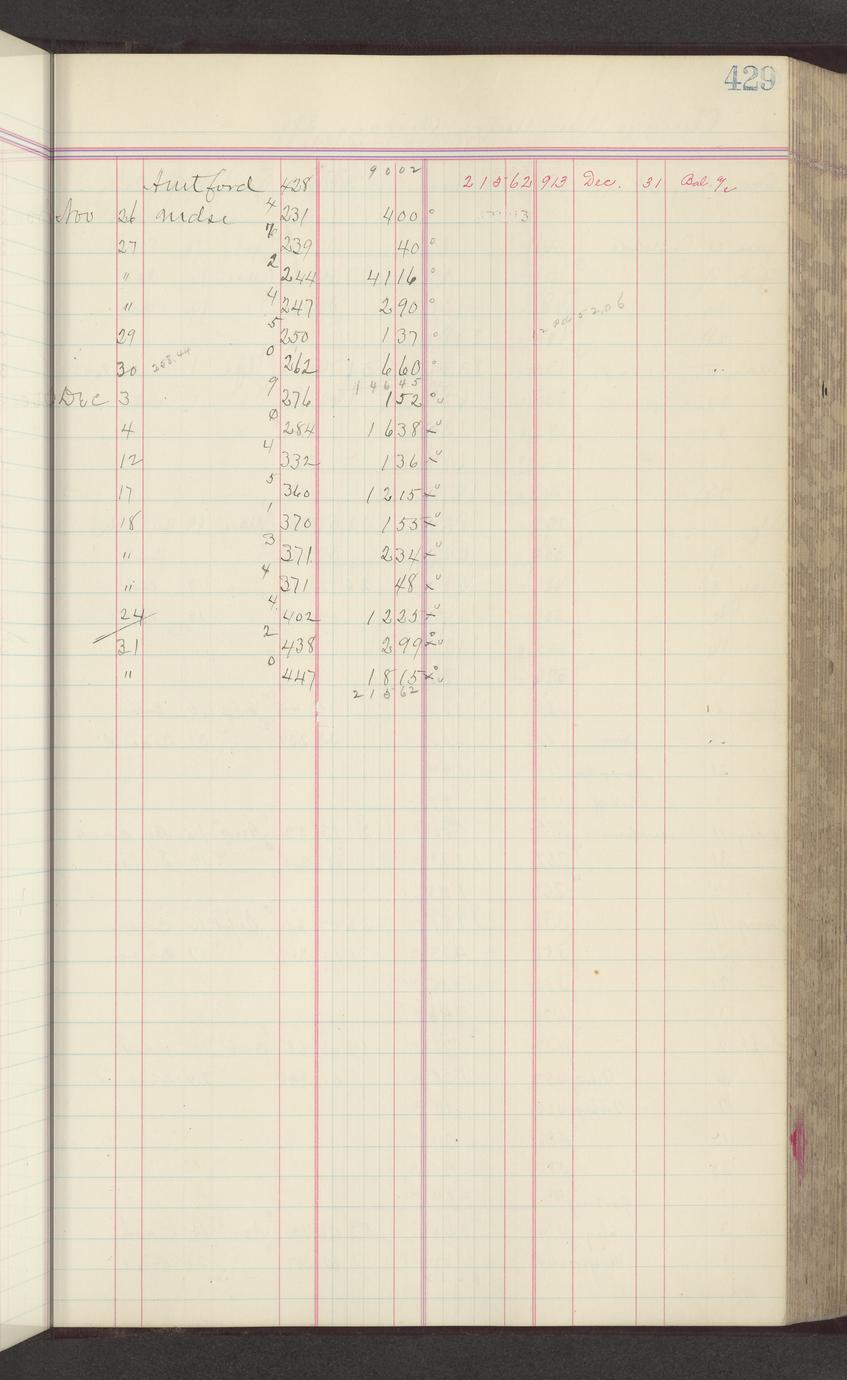 429
Amt ford 428 90 02 215 62 913 Dec. 31 Bal. %
Nov 26 Mdse 4 231 4 00
27 239 40
" 2 244 41 16
" 4 247 2 90
29 5 250 1 37
30 258.44 0 262 6 60
146 45
Dec 3 9 276 1 52
4 0 284 16 38
12 4 332 1 36
17 5 360 12 15
18 1 370 1 53
" 3 371 2 34
" 4 371 48
24 4 402 12 25
31 2 438 2 99
" 0 447 18 15
215 62